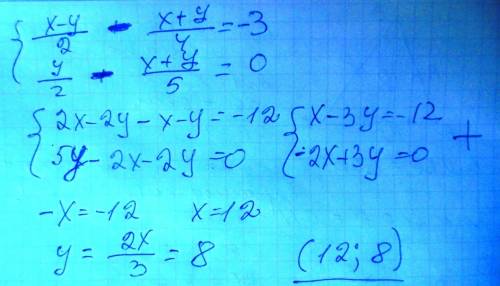 { (x-y)/2 - (x+y)/4 = -3
y/2 - (x+y)/5 = 0
{ 2x-2y-x-y=-12 { x-3y=-12 +
5y-2x-2y=0 -2x+3y=0
-x=-12 x=12
y = 2x/3 = 8 (12; 8)